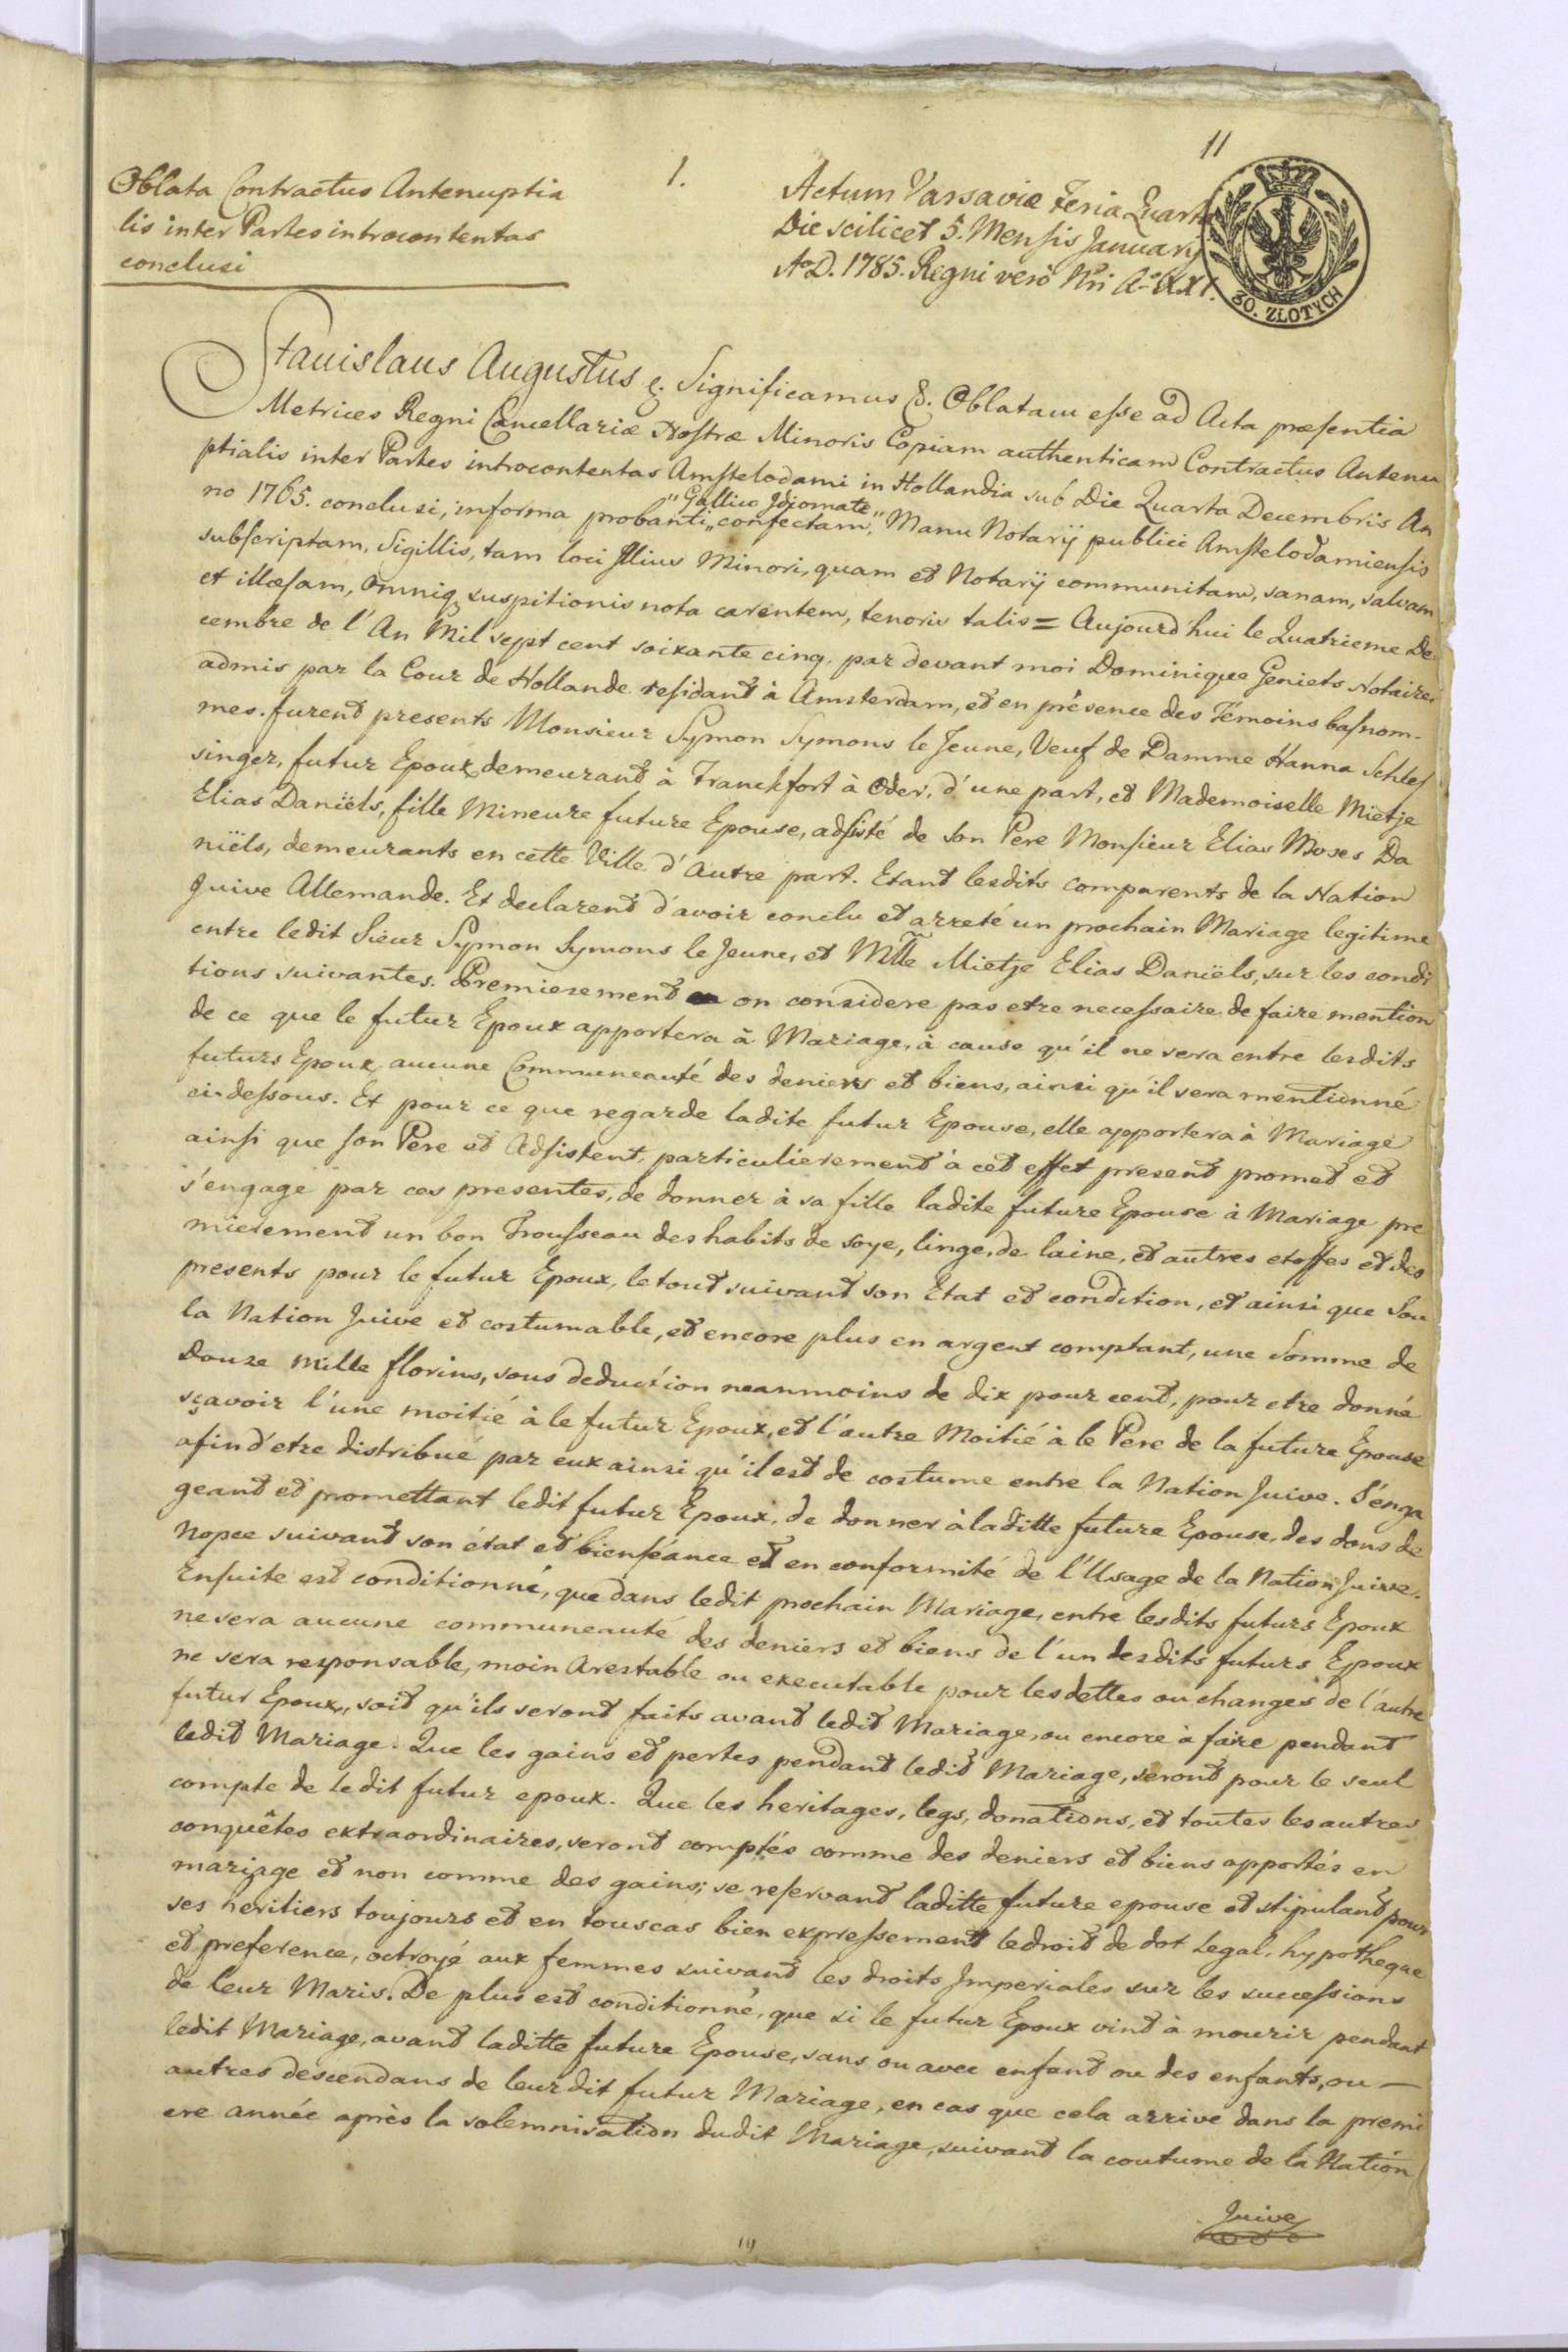 11
1.
Oblata Contractus Antenuptia
lis inter Partes introcontentas
conclusi
Actum Varsaviæ Feria Quarta
Die scilicet 5. Mensis January
Aº D. 1785. Regni verò Nri Aº XXI.
30. ZLOTYCH
Stanislaus Augustus &. Significamus &. Oblatam esse ad Acta præsentia
Metrices Regni Cancellariæ Nostræ Minoris Copiam authenticam Contractus Antenu
ptialis inter Partes introcontentas Amstelodami in Hollandia sub Die Quarta Decembris An
no 1765. conclusi, in forma probanti "Gallico Idiomate" confectam, Manu Notarÿ publici Amstelodamiensis
subscriptam, Sigillis, tam loci Illius Minori, quam et Notarÿ communitam, sanam, salvam
et illæsam, omniq suspitionis nota carentem, tenoris talis = Aujourd'hui le Quatrieme De
cembre de l'An Mil sept cent soixante cinq, par devant moi Dominique Geniets Notaire
admis par la Cour de Hollande residant à Amsterdam, et en présence des Témoins basnom-
mes. furent presents Monsieur Symon Symons le Jeune, Veuf de Damme Hanna Schles
singer, futur Epoux demeurant à Franckfort à Oder, d'une part, et Mademoiselle Mietje
Elias Daniëls, fille Mineure future Epouse, adsisté de son Pere Monsieur Elias Moses Da
niëls, demeurants en cette Ville d'autre part. Etant lesdits comparents de la Nation
Juive Allemande. Et declarent d'avoir conclu et arreté un prochain Mariage legitime
entre ledit Sieur Symon Symons le Jeune, et Mlle Mietje Elias Daniëls, sur les condi
tions suivantes. Premierement on considere pas etre necessaire de faire mention
de ce que le futur Epoux apportera à Mariage, à cause qu'il ne sera entre lesdits
futurs Epoux aucune Communeauté des deniers et biens, ainsi qu'il sera mentionné
ci-dessous. Et pour ce que regarde ladite futur Epouse, elle apportera à Mariage
ainsi que son Pere et Adsistent, particulierement à cet effet present promet et
s'engage par ces presentes, de donner à sa fille ladite future Epouse à Mariage pre
mierement un bon Trousseau des habits de soye, linge, de laine, et autres etoffes et des
presents pour le futur Epoux, le tout suivant son Etat et condition, et ainsi que sou
la Nation Juive et costumable, et encore plus en argent comptant, une Somme de
Douze mille florins, sous deduction neanmoins de dix pour cent, pour etre donné
sçavoir l'une moitié à le futur Epoux, et l'autre Moitié à le Pere de la future Epouse
afin d'etre distribué par eux ainsi qu'il est de costume entre la Nation Juive. S'enga
geant et promettant ledit futur Epoux, de donner à laditte future Epouse, des dons de
Nopce suivant son état et bienséance et en conformité de l'Usage de la Nation Juive.
Ensuite est conditionné, que dans ledit prochain Mariage, entre lesdits futurs Epoux
ne sera aucune communeauté des deniers et biens de l'un desdits futurs Epoux
ne sera responsable, moin Arestable ou executable pour les dettes ou changes de l'autre
futur Epoux, soit qu'ils seront faits avant ledit Mariage, ou encore à faire pendant
ledit Mariage. Que les gains et pertes pendant ledit Mariage, seront pour le seul
compte de ledit futur epoux. Que les heritages, legs, donations, et toutes les autres
conquêtes extraordinaires, seront comptés comme des deniers et biens apportés en
mariage et non comme des gains; se reservant laditte future epouse et stipulant pour
ses heritiers toujours et en tous cas bien expressement le droit de dot Legal, hypotheque
et preference, octroyé aux femmes suivant les droits Imperiales sur les successions
de leur Maris. De plus est conditionné, que si le futur Epoux vint à mourir pendant
ledit Mariage, avant laditte future Epouse, sans ou avec enfant ou des enfants, ou —
autres descendans de leur dit futur Mariage, en cas que cela arrive dans la premi
ere année après la solemnisation dudit Mariage, suivant la coutume de la Nation
Juive